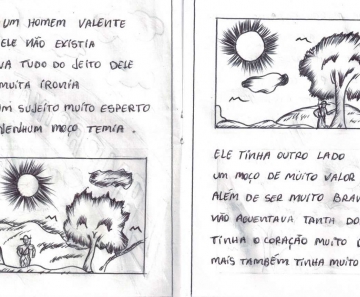 UM HOMEM VALENTE
ELE NÃO EXISTIA
VA TUDO DO JEITO DELE
MUITA IRONIA
UM SUJEITO MUITO ESPERTO
NENHUM MOÇO TEMIA.
ELE TINHA OUTRO LADO
UM MOÇO DE MUITO VALOR
ALÉM DE SER MUITO BRAV
NÃO AGUENTAVA TANTA DO
TINHA O CORAÇÃO MUITO
MAIS TAMBÉM TINHA MUITO